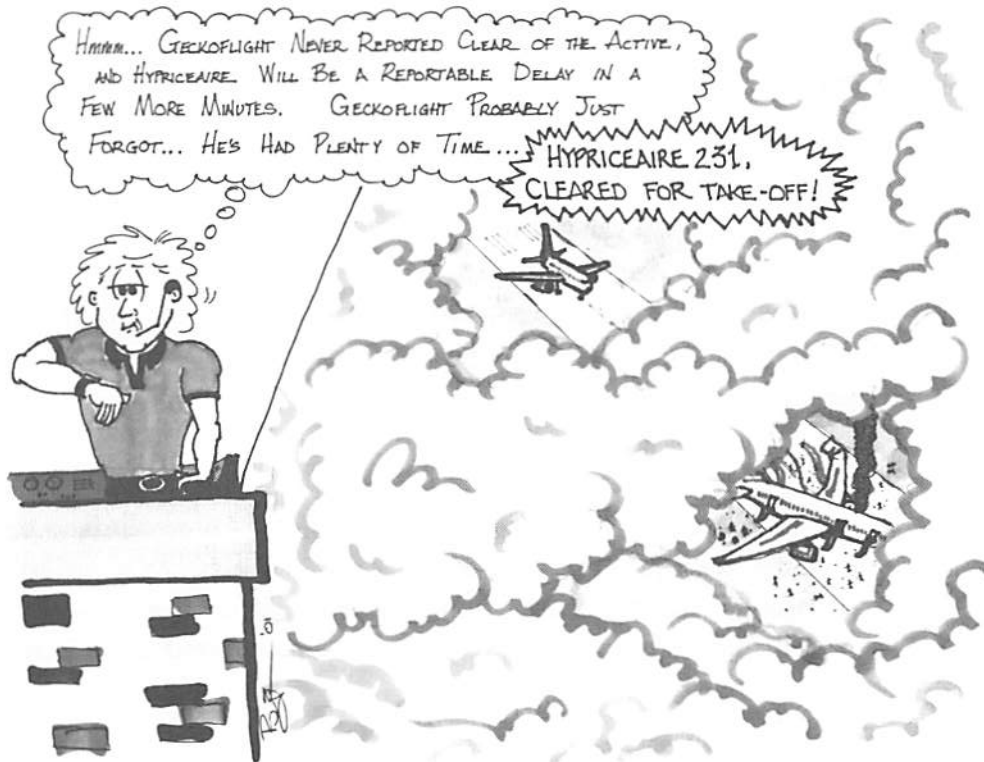 Hmmm... Geckoflight Never Reported Clear of the Active,
and Hypriceaire Will Be a Reportable Delay in a
Few More Minutes. Geckoflight Probably Just
Forgot... He's Had Plenty of Time...
HYPRICEAIRE 231,
CLEARED FOR TAKE-OFF!